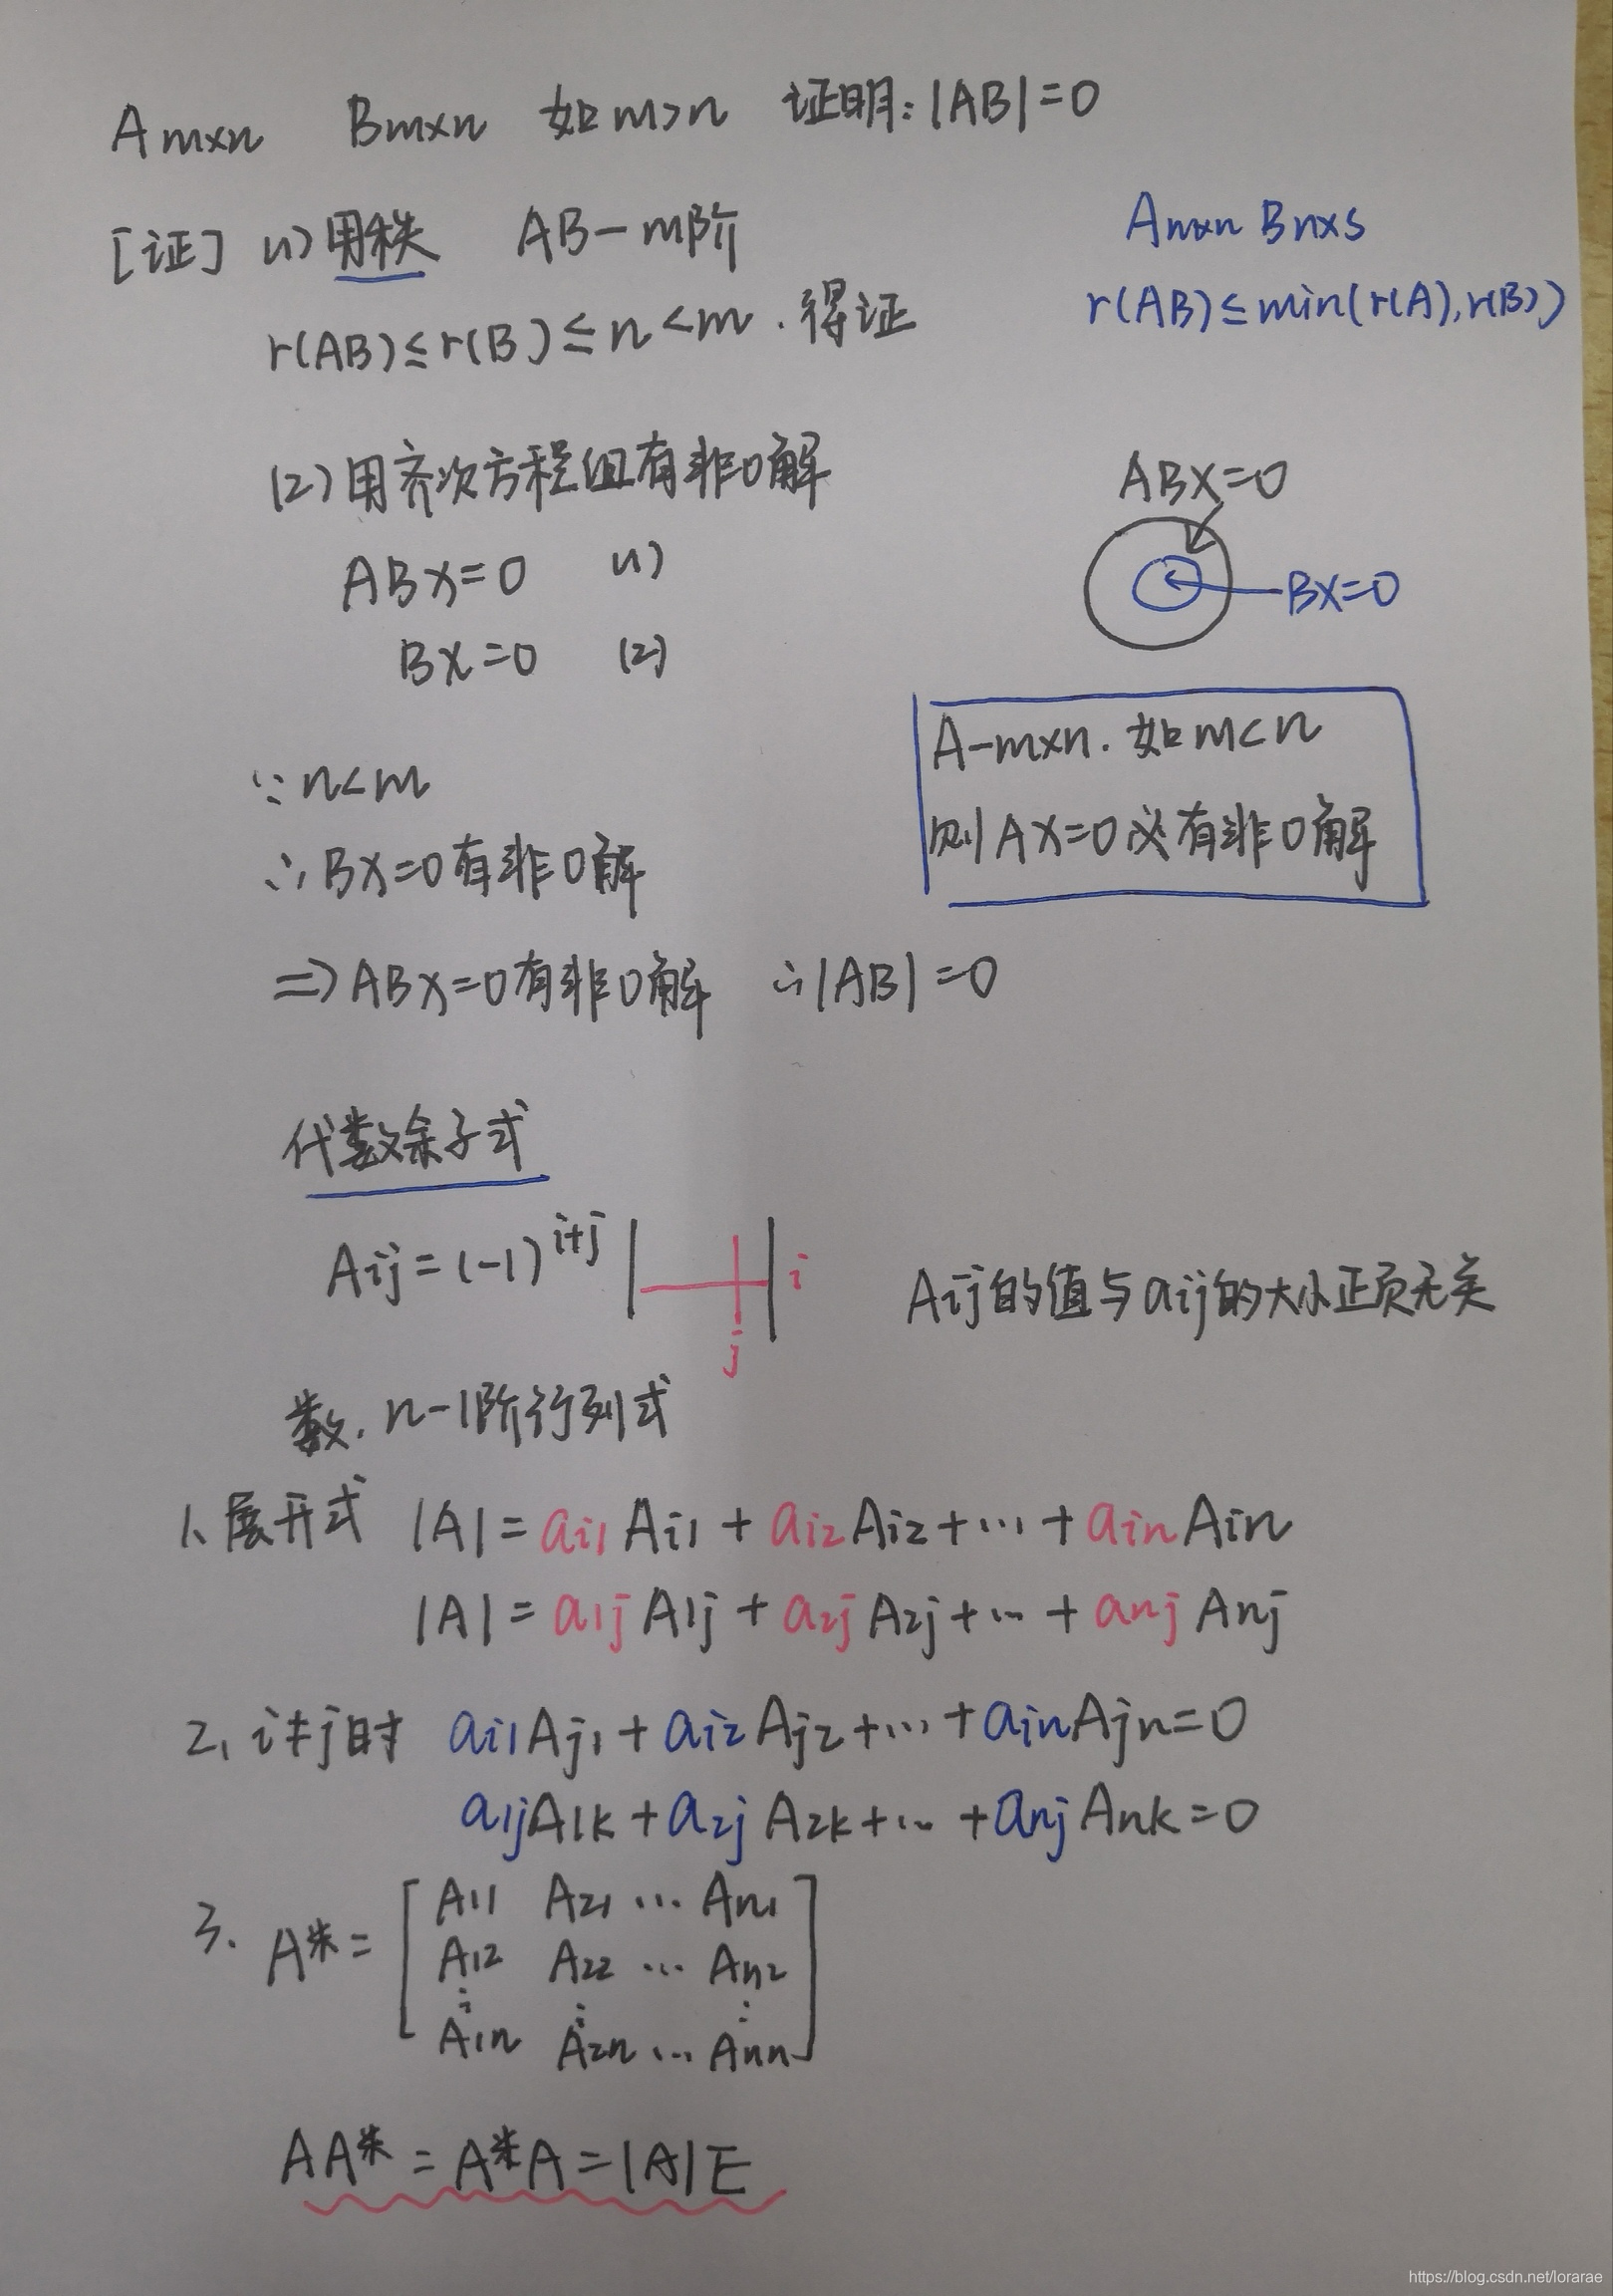 Amxn Bmxn 如m>n 证明:|AB|=0
[证] (1)用秩 AB-m阶
Amxn Bnxs
r(AB)≤r(B)≤n<m.得证
r(AB)≤min(r(A),r(B))
(2)用齐次方程组有非0解
ABX=0
ABx=0 (1)
BX=0
Bx=0 (2)
A-mxn.如m<n
则AX=0必有非0解
∵n<m
∴Bx=0有非0解
⇒ABx=0有非0解 ∴|AB|=0
代数余子式
Aij=(-1)^{i+j} | | i
j
Aij的值与aij的大小正负无关
数.n-1阶行列式
1、展开式 |A|=ai1Ai1+ai2Ai2+…+ainAin
|A|=a1jA1j+a2jA2j+…+anjAnj
2、i≠j时 ai1Aj1+ai2Aj2+…+ainAjn=0
a1jA1k+a2jA2k+…+anjAnk=0
3. A*=[A11 A21 … An1
A12 A22 … An2
⋮ ⋮ ⋮
A1n A2n … Ann]
AA*=A*A=|A|E
https://blog.csdn.net/lorarae